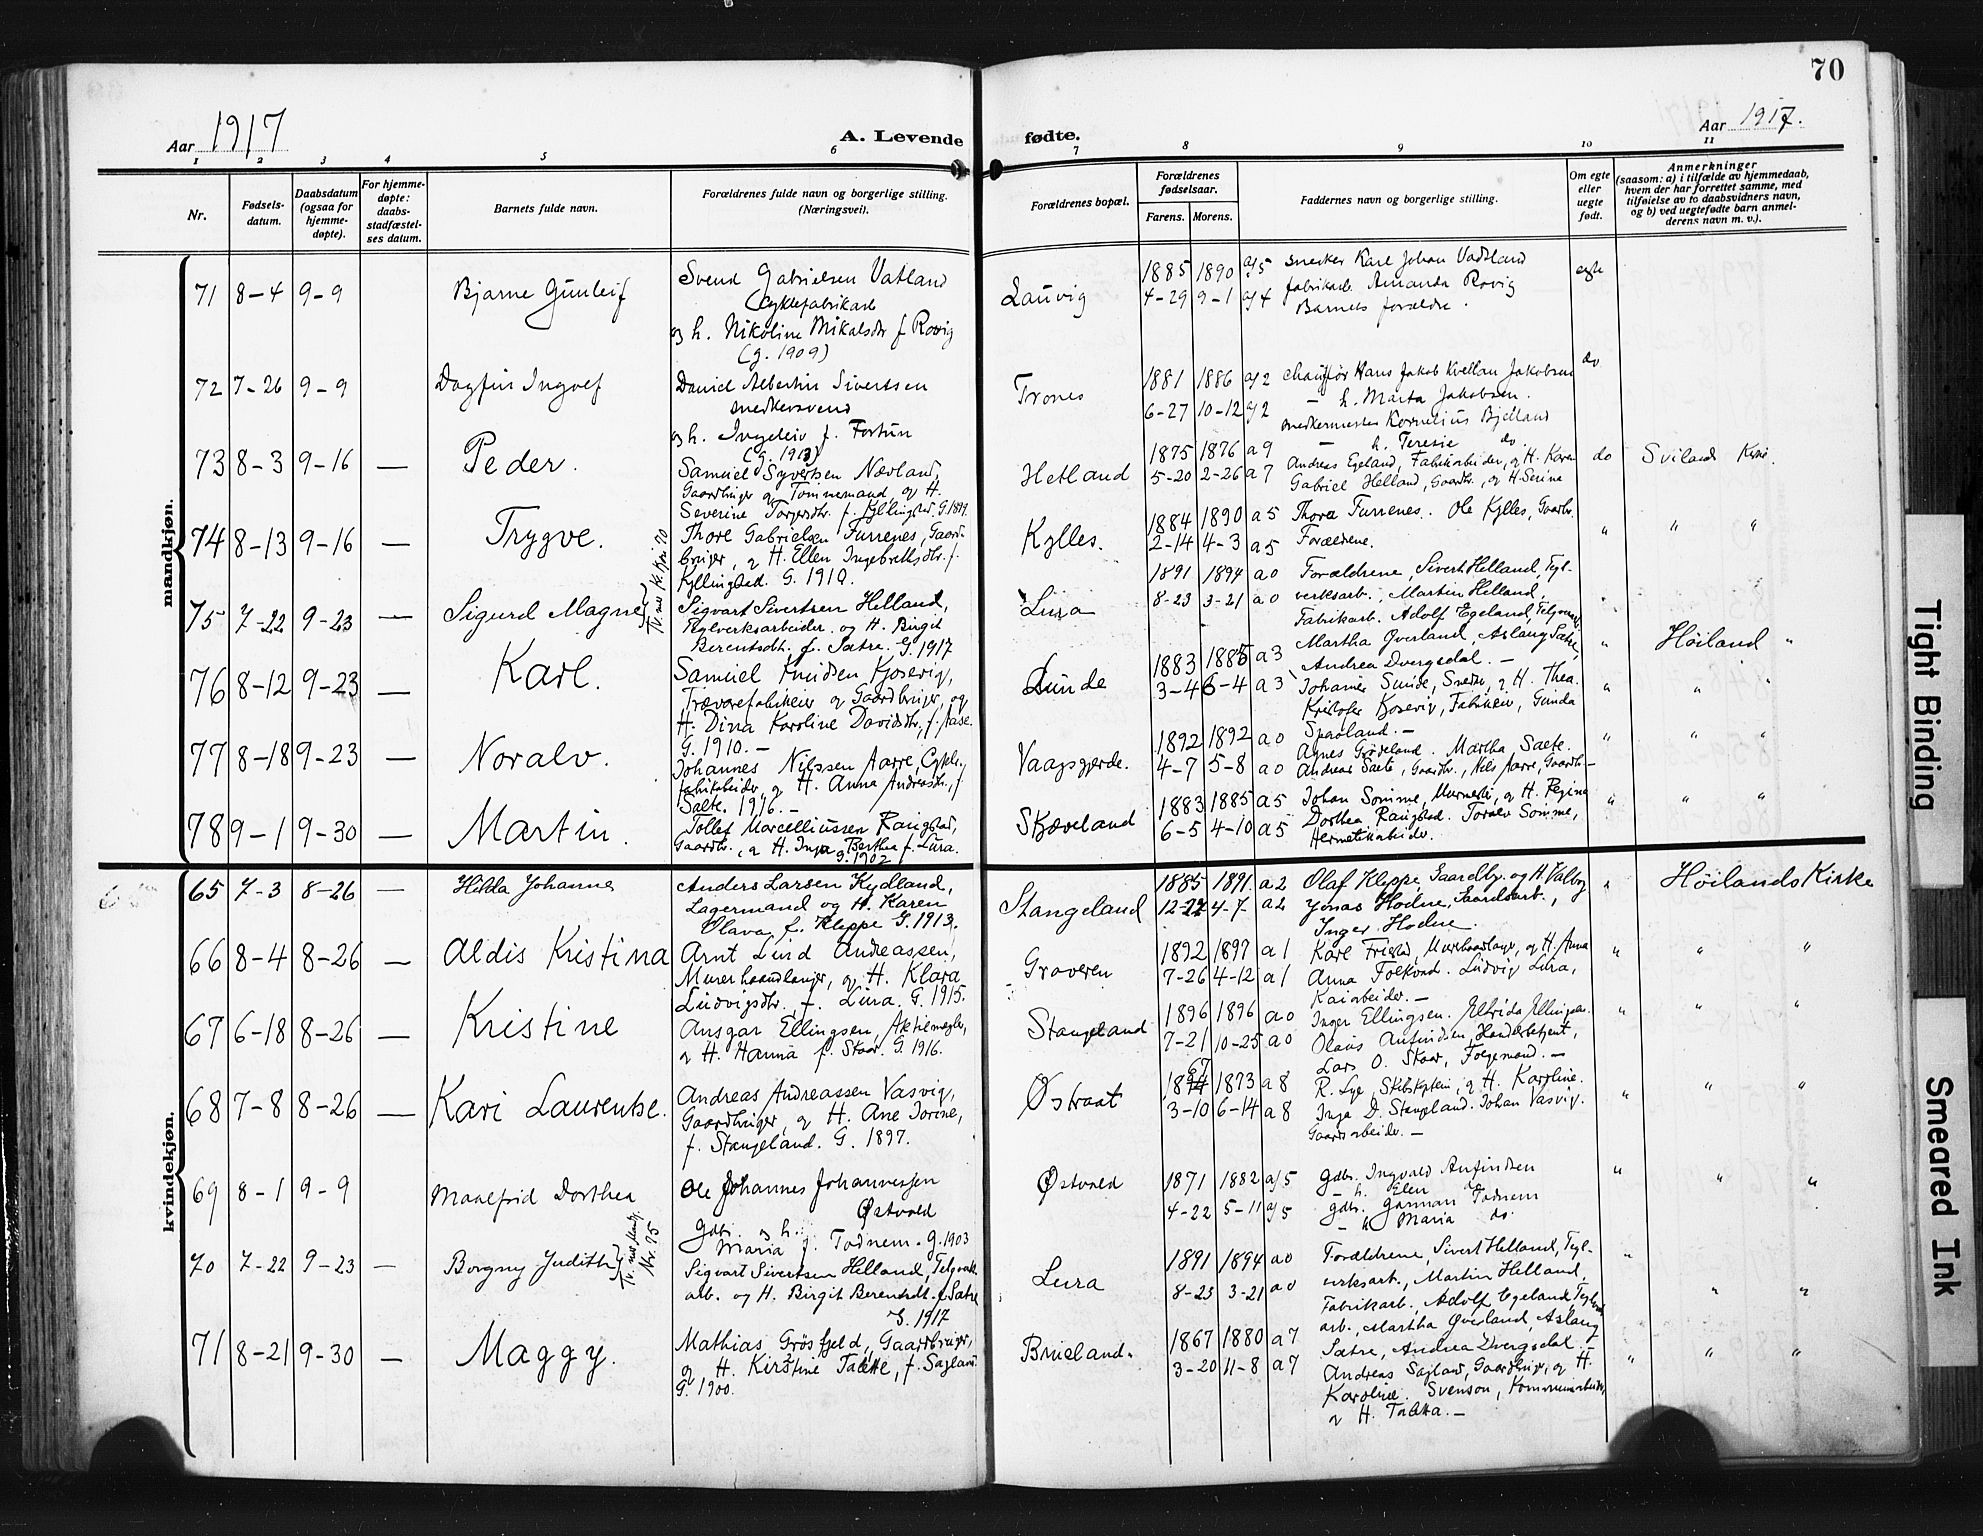 70
Aar 1917
A. Levende
fødte.
Aar 1917.
1 2 3 4 5 6 7 8 9 10 11
Nr.
Fødsels-
datum.
Daabsdatum
(ogsaa for
hjemme-
døpte).
For hjemme-
døpte:
daabs-
stadfæstel-
ses datum.
Barnets fulde navn.
Forældrenes fulde navn og borgerlige stilling.
(Næringsvei).
Forældrenes bopæl.
Forældrenes
fødselsaar.
Farens. Morens.
Faddernes navn og borgerlige stilling.
Om egte
eller
uegte
født.
Anmerkninger
(saasom: a) i tilfælde av hjemmedaab,
hvem der har forrettet samme, med
tilføielse av to daabsvidners navn,
og b) ved uegtefødte barn anmel-
derens navn m. v.).
mandkjøn.
71 8-4 9-9 Bjarne Gunleif
Svend Gabrielsen Vatland
Cyklefabrikark
og h. Nikoline Mikalsdr f. Rovig
(g. 1909)
Lauvig
1885 1890 a/5
4-29 9-1 a/4
snecker Karl Johan Vadsland
fabrikarb Amanda Rovig
Barnets forældre.
egte
72 7-26 9-9 — Dagfin Ingolf
Daniel Albertin Sivertsen
snedkersvend
og h. Ingeleiv f. Fortun
Trones
1881 1886 a/2
6-27 10-12 a/2
chauffør Hans Jakob Kvellan Jakobsen
— h. Marta Jakobsen.
snedkermester Kornelius Bjelland
— h. Teresie do.
do
73 8-3 9-16 — Peder.
Samuel Syvertsen Nævland,
Gaardbruger og Tømmermand, og H.
Severine Torgersdtr. f. Kyllingstad, G. 1899.
Hetland
1875 1876 a 9
5-20 2-26 a 7
Andreas Egeland, Fabrikarbeider, og H. Karen
Gabriel Helland, Gaardbr., og H. Serine
do
Sviland Kirke.
74 8-13 9-16 — Trygve.
Thore Gabrielsen Furenes, Gaard-
bruger, og H. Ellen Ingebretsdtr. f.
Kyllingstad. G. 1910.
Kylles.
1884 1890 a 5
2-14 4-3 a 5
Thora Furenes. Ole Kylles, Gaardbr.
Forældrene.
" " "
75 7-22 9-23 — Sigurd Magne
Tv. med Kv. kj. 70
Sigvart Sivertsen Helland,
Teglverksarbeider og H. Birgit
Berentsdtr. f. Sætre. G. 1917
Lura
1891 1894 a 0
8-23 3-21 a 0
Forældrene, Sivert Helland, Tegl-
verksarb., Martin Helland,
Fabrikarb. Adolf Egeland, Teglverksarb.
Martha Qverland, Aslaug Sætre,
Andrea Dvergsdal. —
" Høiland "
76 8-12 9-23 — Karl.
Samuel Knudsen Kjosevig,
Trævarefabrikeier og Gaardbruger, og
H. Dina Karoline Davidsdtr., f. Aase.
G. 1910. —
Lunde
1883 1885 a 3
3-4 6-4 a 3
Johannes Sunde, Snedker, og H. Thea.
Kristofer Kosevig, Fabrikeier, Gunda
Spaaland. —
" " "
77 8-18 9-23 — Noralv.
Johannes Nilssen Aarre, Cykle-
fabrikarbeider, og H. Anna Andreasdtr., f.
Salte, 1916. —
Vaagsgjerde.
1892 1892 a 0
4-7 5-8 a 0
Agnes Grødeland. Martha Salte.
Andreas Salte, Gaardbr., Nils Aarre, Gaardbr. —
" " "
78 9-1 9-30 — Martin.
Tollef Marcelliussen Raugstad,
Gaardbr., og H. Inga Berthea f. Lura.
G. 1902
Skjæveland
1883 1885 a 5
6-5 4-10 a 5
Johan Sømme, Murmester, og H. Regina
Dorthea Raugstad. Toralv Sømme,
Hermetikarbeider.
" " "
kvindekjøn.
65 7-3 8-26 — Hilda Johanne
Anders Larsen Kydland,
Lagermand og H. Karen
Olava f. Kleppe G. 1913.
Stangeland
1885 1891. a 2
12-22 4-7- a 2
Olaf Kleppe, Gaardby. og H. Valborg
Jonas Hodne, Gaardsarb.,
Inger Hodne.
" Høilands Kirke
66 8-4 8-26 — Aldis Kristina
Arnt Lind Andreassen,
Murerhaandlanger, og H. Klara
Ludvigsdtr. f. Lura. G. 1915.
Graveren
1892 1897 a 1
7-26 4-12 a 1
Karl Fristad, Murerhaandlanger, og H. Anna
Anna Folkvord. Ludvig Lura,
Kaiarbeider. —
" " "
67 6-18 8-26 — Kristine
Ansgar Ellingsen, Aktiemegler,
og H. Hanna f. Skaar. G. 1916.
Stangeland
1896 1896 a 0
7-21 10-25 a 0
Inger Ellingsen. Elfrida Ellingsen.
Olaus Anfindsen, Handelsbetjent,
Lars O. Skaar, Forgemand. —
" " "
68 7-8 8-26 — Kari Laurentse.
Andreas Andreassen Vasvig,
Gaardbruger, og H. Ane Torine,
f. Stangeland. G. 1897.
Østraat
1873 a 8
3-10 6-14 a 8
R. Lye, Skibskaptein, og H. Karoline.
Inga D. Stangeland. Johan Vasvig.
Gaardsarbeider. —
" " "
69 8-1 9-9 Maalfrid Dorthea
Ole Johannes Johannesen
Østvold
Gdbr. og h.
Maria f. Todnem. g. 1903
Østvold
1871 1882 a/5
4-22 5-11 a/5
Gdbr. Ingvald Anfindsen
— h. Elen do
gdbr. Garman Todnem
— h. Maria do
" " "
70 7-22 9-23 — Borgny Judith
Tv. med Mandkj. Nr. 75
Sigvart Sivertsen Helland, Telgverks
arb. og H. Birgit Berentsdt. f. Sætre
G. 1917
Lura
1891 1894 a 0
8-23 3-21 a 0
Forældrene, Sivert Helland, Tegl-
verksarb., Martin Helland,
Fabrikarb., Adolf Egeland Teglverks
arb., Martha Qverland, Aslaug
Sætre, Andrea Dvergsdal.
" " "
71 8-21 9-30 — Maggy.
Mathias Grøsfjeld, Gaardbruger,
og H. Kirstine Talette, f. Sagland.
G. 1900.
Brueland.
1867 1880 a 7
3-20 11-8 a 7
Andreas Sagland, Gaardbruger, og H.
Karoline. Svenson, Kommunearbeider,
og H. Taletta. —
" " "
Tight Binding
Smeared Ink